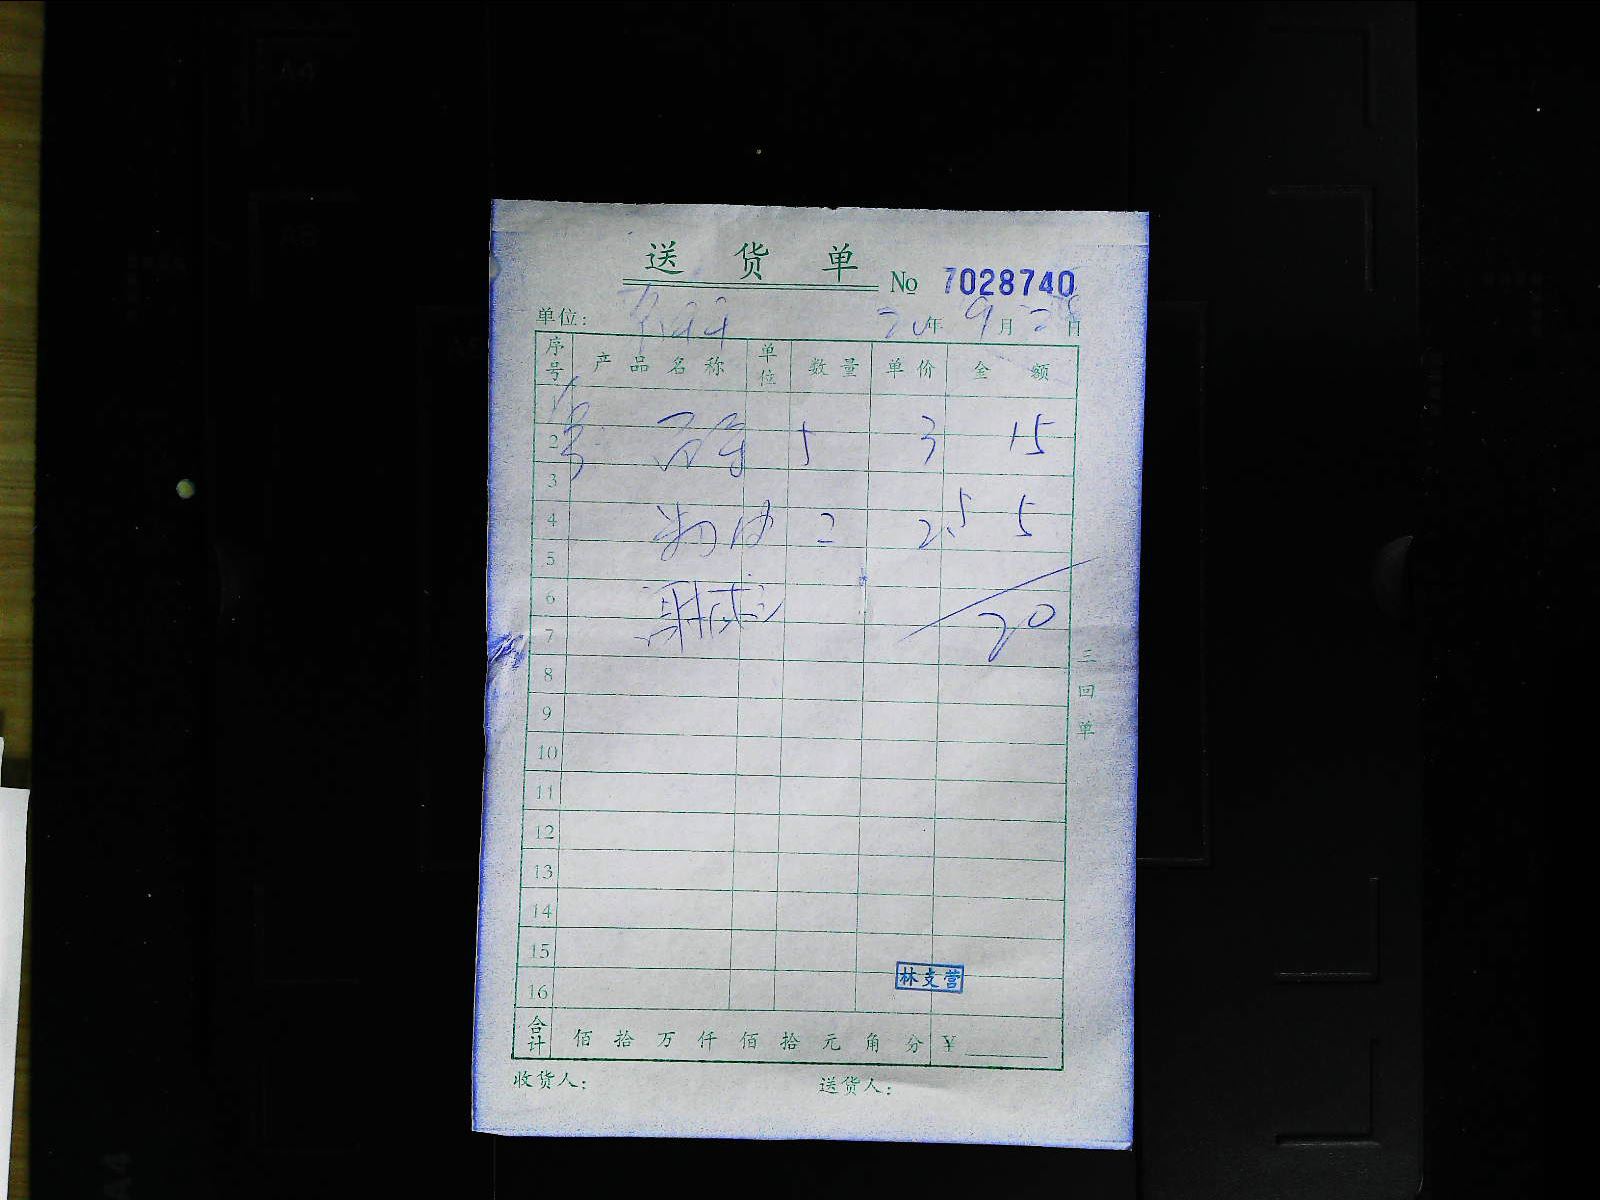 送货单 № 7028740
单位： 20年9月28日
序号 产品名称 单位 数量 单价 金额
1
2 5 3 15
3
4 2 2.5 5
5
6
7 20
8
9
10
11
12
13
14
15
16
林支营
合计 佰拾万仟佰拾元角分 ¥
收货人： 送货人：
三回单